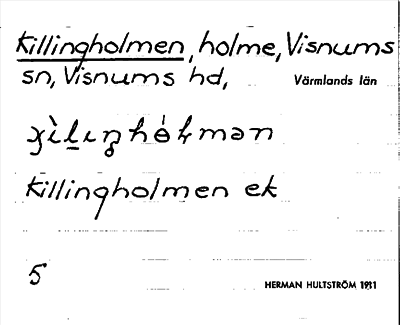 Killingholmen, holme, Visnums
sn, Visnums hd,
Värmlands län
Killingholmen ek
5
HERMAN HULTSTRÖM 1931